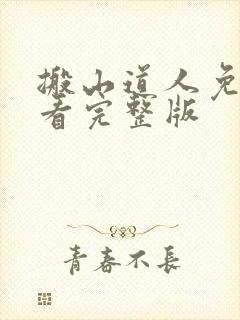 搬山道人免
看完整版
青春不長